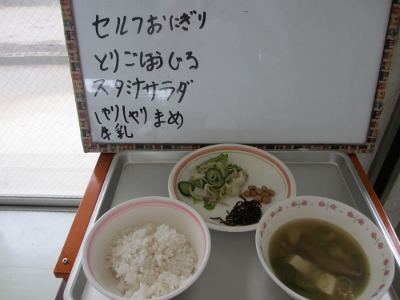 セルフおにぎり
とりごぼうじる
スタミナサラダ
しゃりしゃりまめ
牛乳